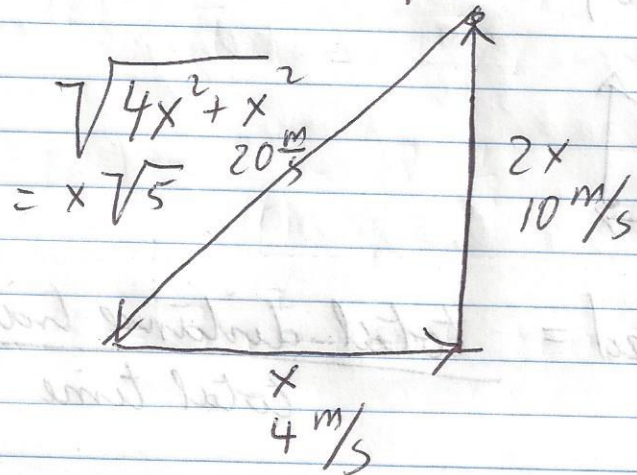 √4x² + x²
= x √5
20 m/s
2x
10 m/s
x
4 m/s